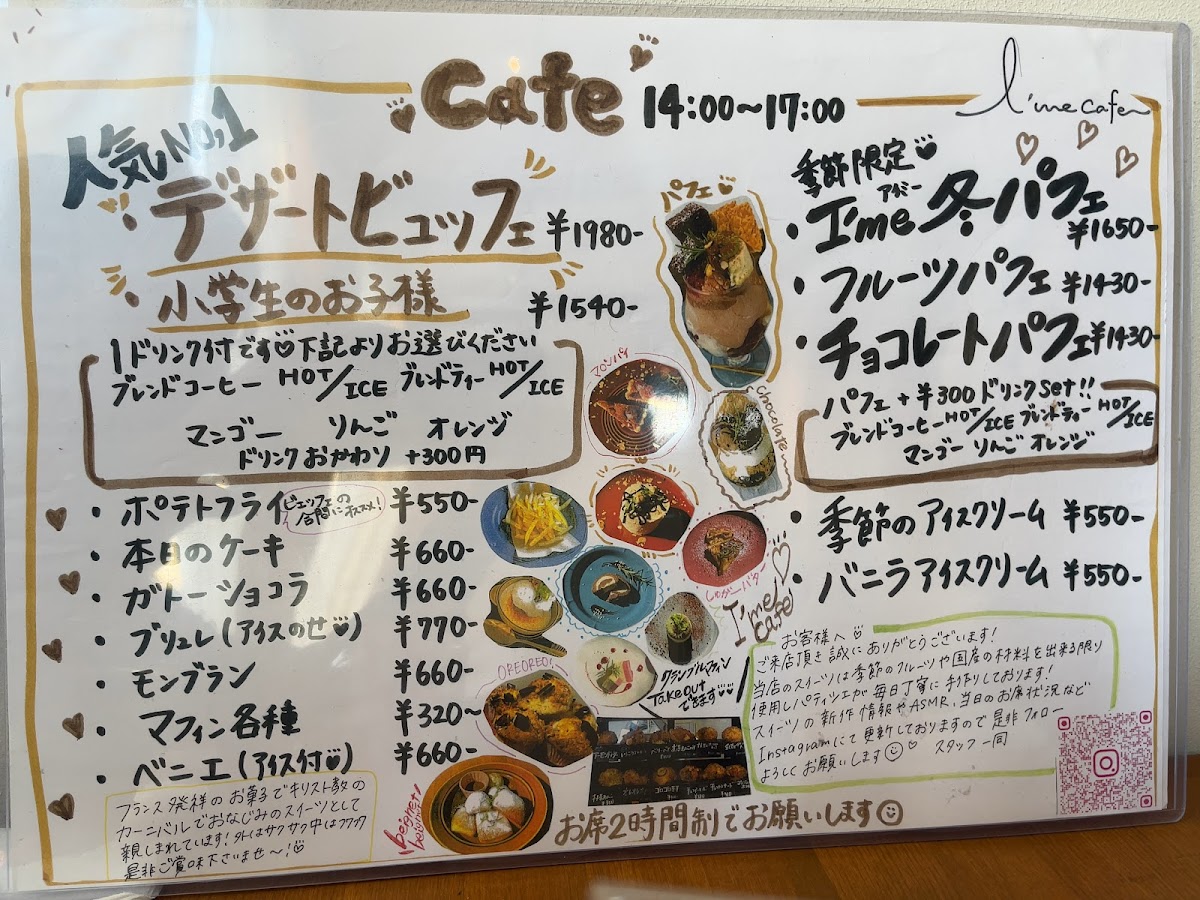 Cafe 14:00〜17:00
I'me cafe
人気NO,1
・デザートビュッフェ ¥1980-
・小学生のお子様 ¥1540-
1ドリンク付です♡下記よりお選びください
ブレンドコーヒー HOT/ICE ブレンドティー HOT/ICE
マンゴー りんご オレンジ
ドリンクおかわり +300円
・ポテトフライ ¥550-
ビュッフェの
合間にオススメ!
・本日のケーキ ¥660-
・ガトーショコラ ¥660-
・ブリュレ(アイスのせ♡) ¥770-
・モンブラン ¥660-
・マフィン各種 ¥320〜
・ベニエ(アイス付♡) ¥660-
フランス発祥のお菓子でキリスト教の
カーニバルでおなじみのスイーツとして
親しまれています!外はサクサク中はフワフワ
是非ご賞味下さいませ〜!♡
パフェ♡
マロンパイ
chocolate
しゅがーバター
I'me cafe
OREOREO!
クランブルマフィン
Takeout
できます♡♡
beignet
お席2時間制でお願いします☺
季節限定♡
アイミー
・I'me 冬パフェ ¥1650-
・フルーツパフェ ¥1430-
・チョコレートパフェ ¥1430-
パフェ+¥300ドリンクset!!
ブレンドコーヒーHOT/ICE ブレンドティーHOT/ICE
マンゴー りんご オレンジ
・季節のアイスクリーム ¥550-
・バニラアイスクリーム ¥550-
お客様へ♡
ご来店頂き誠にありがとうございます!
当店のスイーツは季節のフルーツや国産の材料を出来る限り
使用しパティシエが毎日丁寧に手作りしております!
スイーツの新作情報やASMR、当日のお席状況など
Instagramにて更新しておりますので是非フォロー
よろしくお願いします☺♡ スタッフ一同